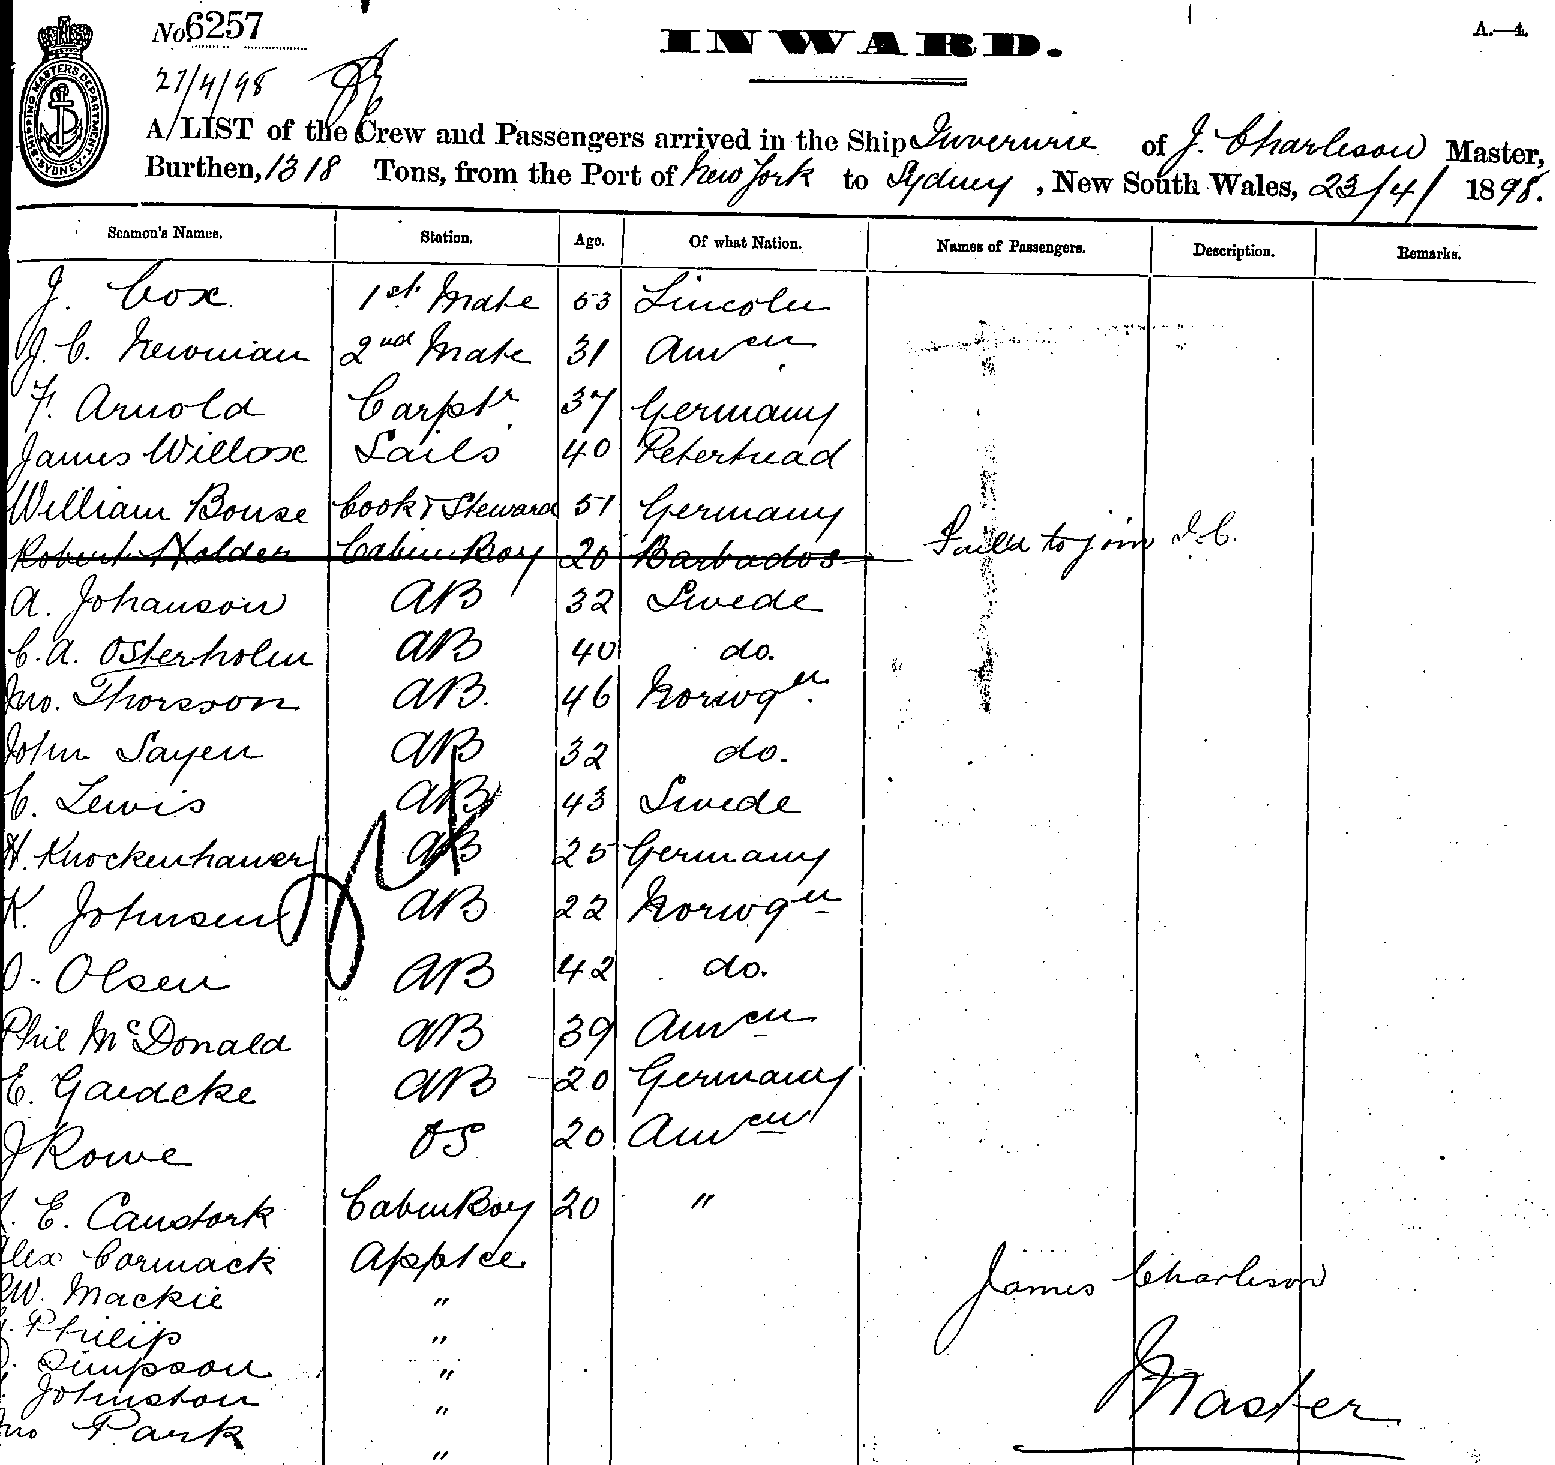 No. 6257
INWARD.
A.—4.
27/4/98
SHIPPING MASTERS DEPARTMENT SYDNEY
A LIST of the Crew and Passengers arrived in the Ship Inverurie of J. Charleson Master,
Burthen, 1318 Tons, from the Port of New York to Sydney, New South Wales, 23/4/ 1898.
Seamen's Names. Station. Age. Of what Nation. Names of Passengers. Description. Remarks.
J. Cox 1st Mate 53 Lincoln
J. C. Newman 2nd Mate 31 Amcn
F. Arnold Carptr 37 Germany
James Willox Sails 40 Peterhead
William Bouse Cook & Steward 51 Germany
Robert Holder Cabin Boy 20 Barbados Failed to join J.C.
A. Johanson AB 32 Swede
C. A. Osterholm AB 40 do.
Jno. Thorsson AB. 46 Norwgn.
John Sayen AB 32 do.
C. Lewis AB 43 Swede
H. Knockenhauer AB 25 Germany
K. Johnsen AB 22 Norwgn
O. Olsen AB 42 do.
Phil McDonald AB 39 Amcn
E. Gaedcke AB 20 Germany
J Rowe OS 20 Amcn
E. Canstork Cabin Boy 20 "
Alex Cormack Apptce
W. Mackie "
Philip "
Simpson "
Johnston "
Jno Park "
James Charleson
Master